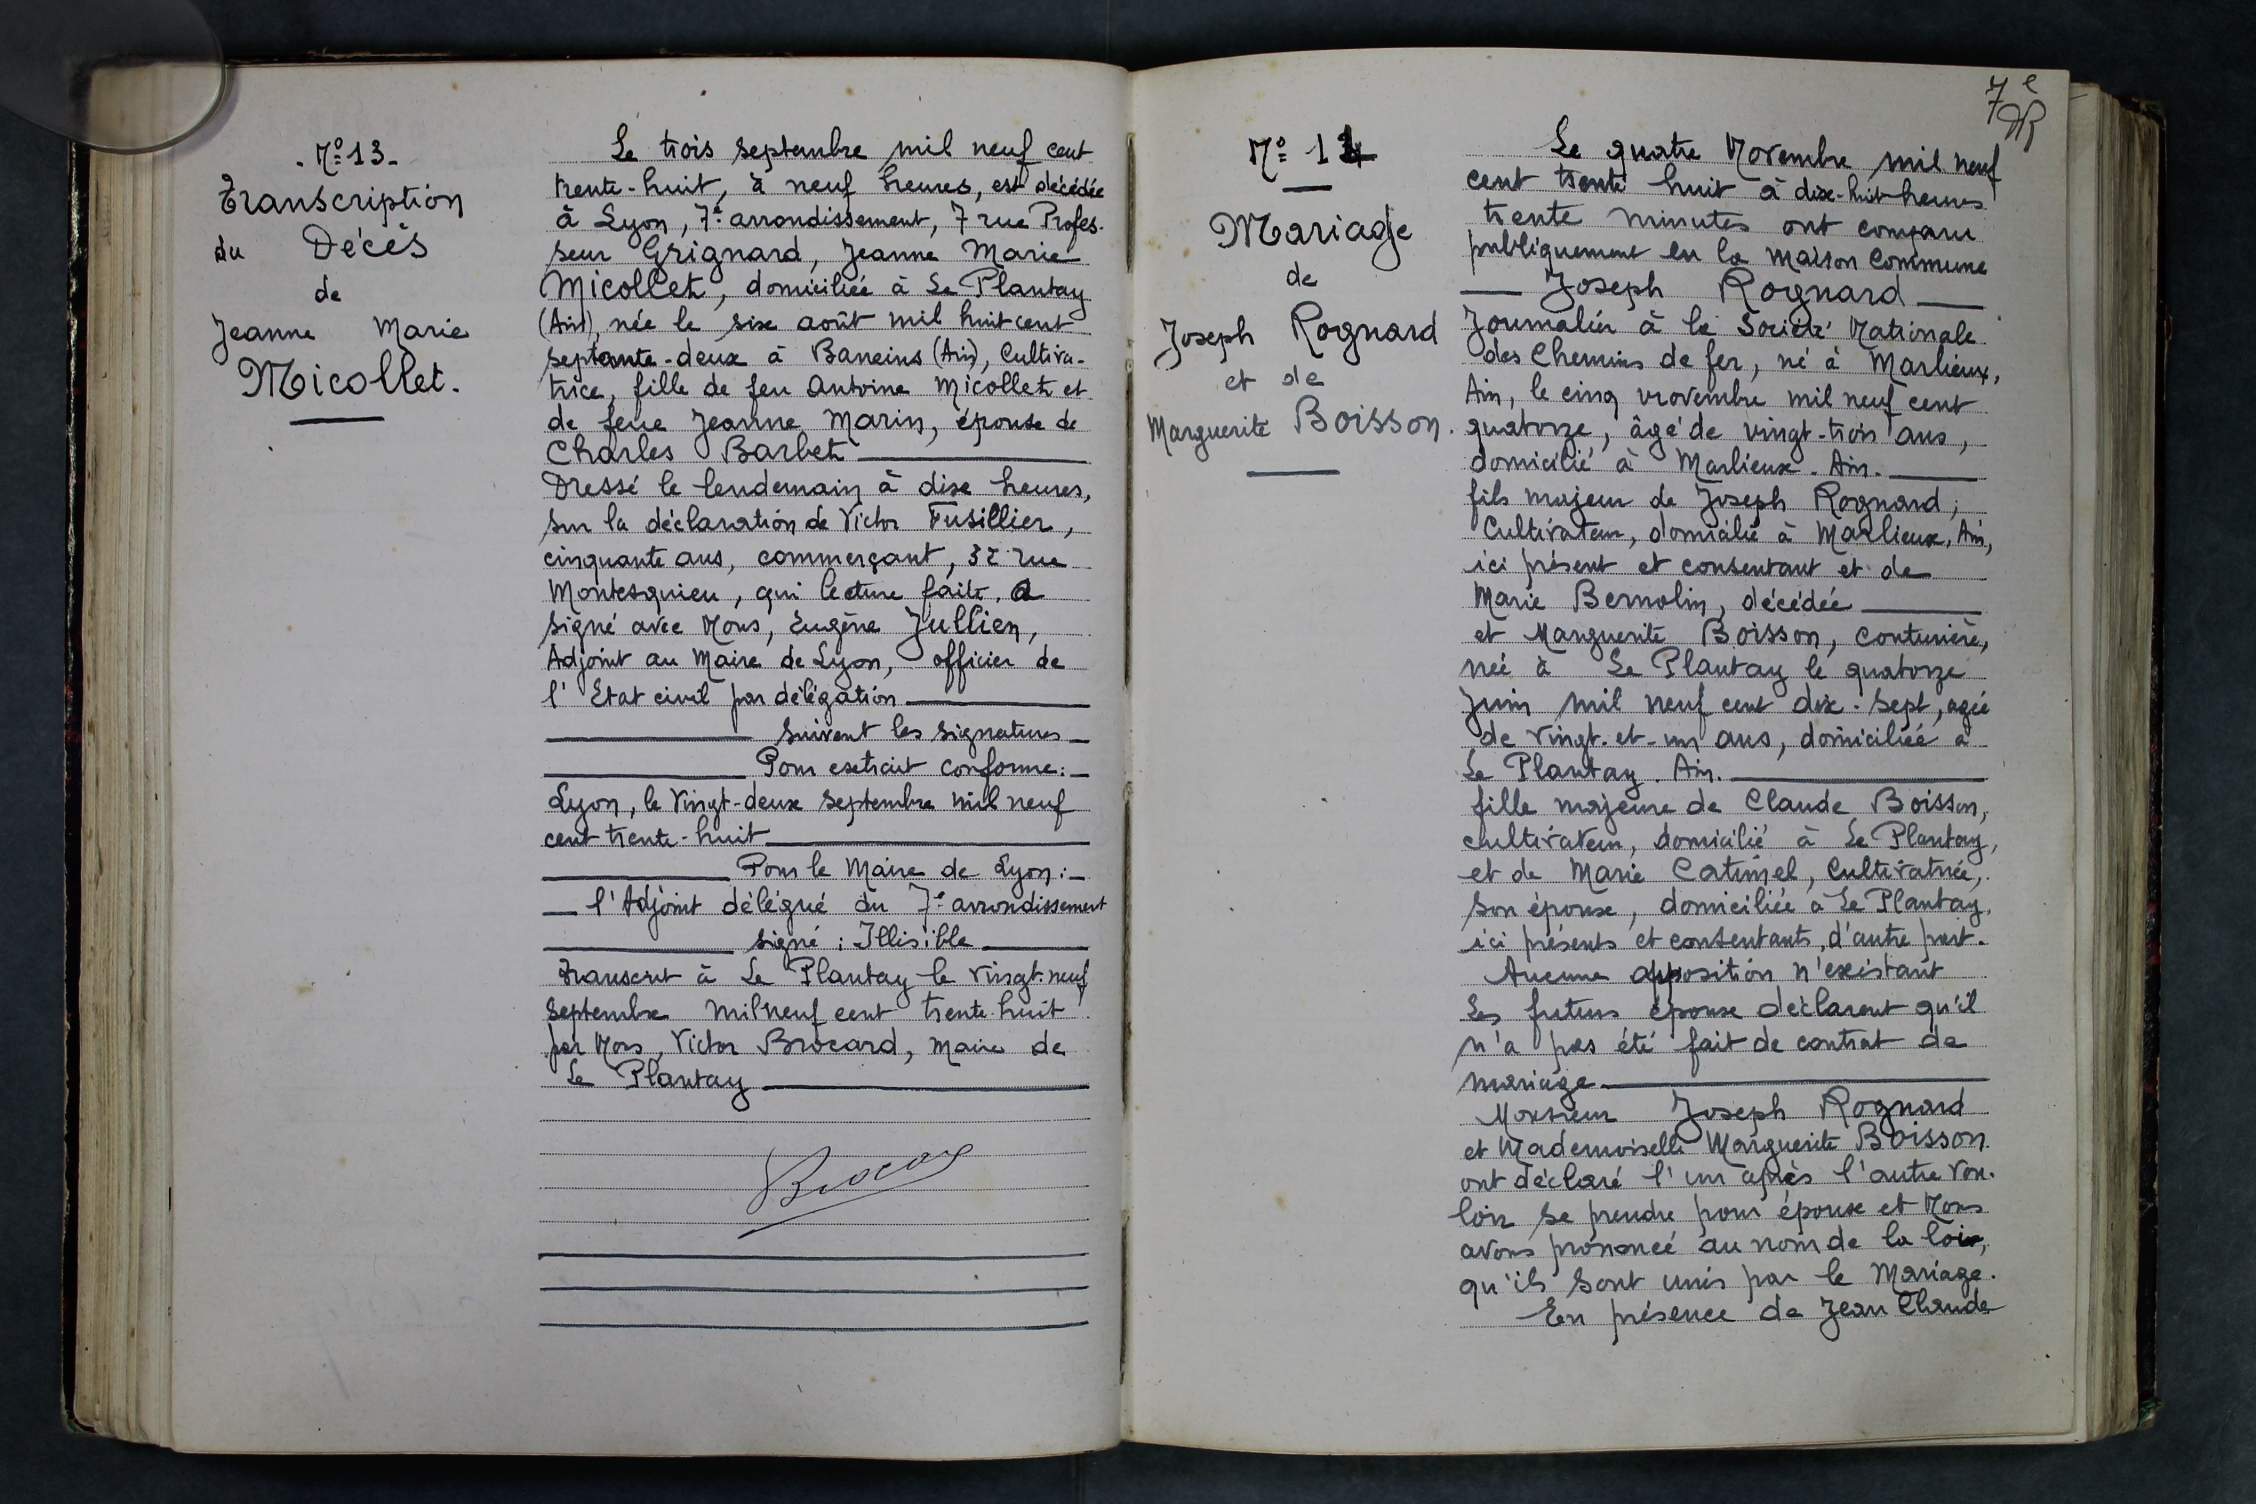 - N° 13 -
Transcription
du Décès
de
Jeanne Marie
Micollet.
Le trois septembre mil neuf cent
trente-huit, à neuf heures, est décédée
à Lyon, 7e arrondissement, 7 rue Profes-
seur Grignard, Jeanne Marie
Micollet, domiciliée à Le Plantay
(Ain), née le six août mil huit cent
septante-deux à Baneins (Ain), Cultiva-
trice, fille de feu Antoine Micollet et
de feue Jeanne Marin, épouse de
Charles Barbet
Dressé le lendemain à dix heures,
sur la déclaration de Victor Fusillier,
cinquante ans, commerçant, 32 rue
Montesquieu, qui lecture faite, a
signé avec Nous, Eugène Jullien,
Adjoint au Maire de Lyon, officier de
l'Etat civil par délégation
suivent les signatures
Pour extrait conforme :
Lyon, le vingt-deux septembre mil neuf
cent trente-huit
Pour le Maire de Lyon :
l'Adjoint délégué du 7e arrondissement
signé : Illisible
Transcrit à Le Plantay le vingt-neuf
septembre mil neuf cent trente-huit
par Nous, Victor Brocard, Maire de
Le Plantay
Brocard
7e
N° 14
Mariage
de
Joseph Rognard
et de
Marguerite Boisson.
Le quatre Novembre mil neuf
cent trente huit à dix-huit heures
trente minutes ont comparu
publiquement en la maison commune
Joseph Rognard
Journalier à la Société Nationale
des Chemins de fer, né à Marlieux,
Ain, le cinq novembre mil neuf cent
quatorze, âgé de vingt-trois ans,
domicilié à Marlieux. Ain.
fils majeur de Joseph Rognard,
Cultivateur, domicilié à Marlieux, Ain,
ici présent et consentant et de
Marie Bernolin, décédée
et Marguerite Boisson, couturière,
née à Le Plantay le quatorze
Juin mil neuf cent dix-sept, agée
de vingt-et-un ans, domiciliée à
Le Plantay. Ain.
fille majeure de Claude Boisson,
cultivateur, domicilié à Le Plantay,
et de Marie Catimel, Cultivatrice,
son épouse, domiciliée à Le Plantay,
ici présents et consentants, d'autre part.
Aucune opposition n'existant
Les futurs époux déclarent qu'il
n'a pas été fait de contrat de
mariage
Monsieur Joseph Rognard
et Mademoiselle Marguerite Boisson
ont déclaré l'un après l'autre vou-
loir se prendre pour époux et Nous
avons prononcé au nom de la loi,
qu'ils sont unis par le Mariage.
En présence de Jean Claude